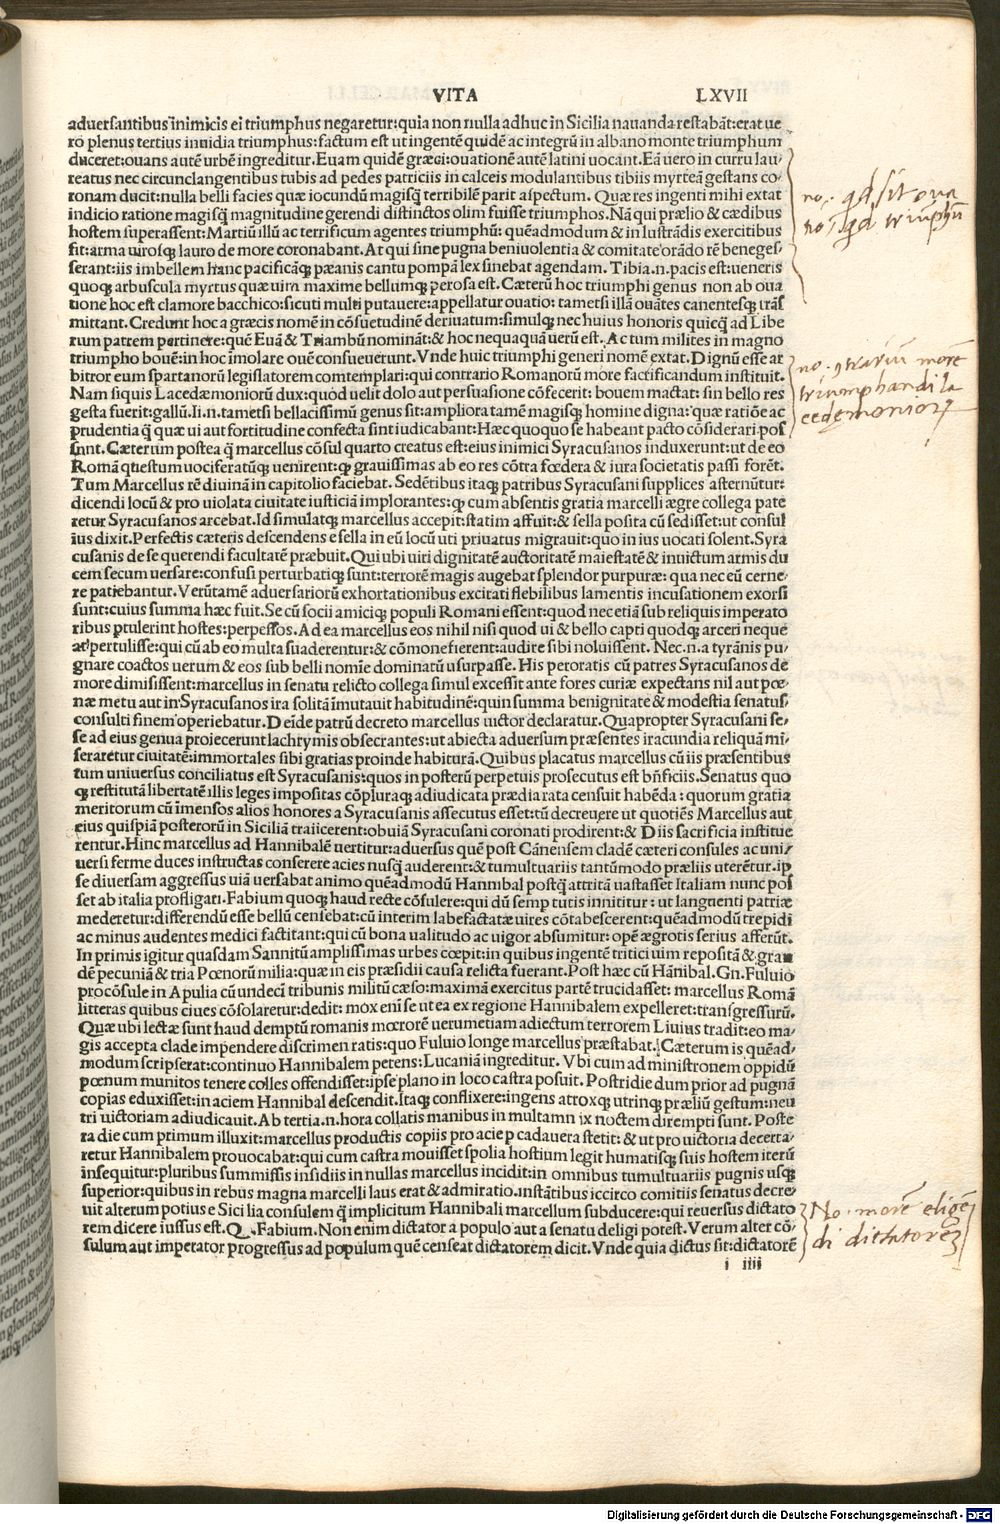 VITA LXVII
aduersantibus inimicis ei triumphus negaretur:quia non nulla adhuc in Sicilia nauanda restabāt:erat ue
ro plenus tertius inuidia triumphus:factum est ut ingentē quidē ac integrū in albano monte triumphum
duceret:ouans autē urbē ingreditur.Euam quidē græci:ouationē autē latini uocant.Eā uero in curru lau/
reatus nec circunclangentibus tubis ad pedes patriciis in calceis modulantibus tibiis myrteā gestans co/
ronam ducit:nulla belli facies quæ iocundū magisq̃ terribilē parit aspectum. Quæ res ingenti mihi extat
indicio ratione magisq̃ magnitudine gerendi distinctos olim fuisse triumphos.Nā qui prælio & cædibus
hostem superassent:Martiū illū ac terrificum agentes triumphū: quēadmodum & in lustrādis exercitibus
fit:arma uirosq; lauro de more coronabant.At qui sine pugna beniuolentia & comitate orādo rē benegef/
serant:iis imbellem hanc pacificāq; pæanis cantu pompā lex sinebat agendam. Tibia.n.pacis est:ueneris
quoq; arbuscula myrtus quæ uim maxime bellumq; perosa est. Cæterū hoc triumphi genus non ab oua
tione hoc est clamore bacchico:sicuti multi putauere:appellatur ouatio: tametsi illā ouātes canentesq; trās
mittant.Credunt hoc a græcis nomē in cōsuetudinē deriuatum:simulq; nec huius honoris quicq̃ ad Libe
rum patrem pertinere:quē Euā & Triambū nomināt:& hoc nequaquā uerū est. Ac tum milites in magno
triumpho bouē:in hoc īmolare ouē consueuerunt.Vnde huic triumphi generi nomē extat.Dignū esse ar
bitror eum spartanorū legislatorem comtemplari:qui contrario Romanorū more factificandum instituit.
Nam siquis Lacedæmoniorū dux:quod uelit dolo aut persuasione cōfecerit: bouem mactat: sin bello res
gesta fuerit:gallū.Ii.n.tametsi bellacissimū genus sit:ampliora tamē magisq; homine digna: quæ ratiōe ac
prudentia q̃ quæ ui aut fortitudine confecta sint iudicabant:Hæc quoquo se habeant pacto cōsiderari pos
sunt. Cæterum postea q̃ marcellus cōsul quarto creatus est:eius inimici Syracusanos induxerunt:ut de eo
Romā questum uociferatūq; uenirent:q; grauissimas ab eo res cōtra fœdera & iura societatis passi forēt.
Tum Marcellus rē diuinā in capitolio faciebat. Sedētibus itaq; patribus Syracusani supplices asternūtur:
dicendi locū & pro uiolata ciuitate iusticiā implorantes:q; cum absentis gratia marcelli ægre collega pate
retur Syracusanos arcebat.Id simulatq; marcellus accepit:statim affuit:& sella posita cū sedisset:ut consul
ius dixit.Perfectis cæteris descendens e sella in eū locū uti priuatus migrauit:quo in ius uocati solent.Syra
cusanis de se querendi facultatē præbuit.Qui ubi uiri dignitatē auctoritatē maiestatē & inuictum armis du
cem secum uersare:confusi perturbatiq; sunt:terrorē magis augebat splendor purpuræ: qua nec eū cerne/
re patiebantur.Verūtamē aduersariorū exhortationibus excitati flebilibus lamentis incusationem exorsi
sunt:cuius summa hæc fuit.Se cū socii amiciq; populi Romani essent:quod nec etiā sub reliquis imperato
ribus ptulerint hostes:perpessos.Ad ea marcellus eos nihil nisi quod ui & bello capti quodq; arceri neque
at pertulisse:qui cū ab eo multa suaderentur:& cōmonefierent:audire sibi noluissent. Nec.n.a tyrānis pu/
gnare coactos uerum & eos sub belli nomīe dominatū usurpasse. His peroratis cū patres Syracusanos de
more dimisissent:marcellus in senatu relicto collega simul excessit ante fores curiæ expectans nil aut pœ/
næ metu aut in Syracusanos ira solitā īmutauit habitudinē:quin summa benignitate & modestia senatus/
consulti finem operiebatur.Deīde patrū decreto marcellus uictor declaratur.Quapropter Syracusani se/
se ad eius genua proiecerunt lachrymis obsecrantes:ut abiecta aduersum præsentes iracundia reliquā mi/
seraretur ciuitatē:immortales sibi gratias proinde habiturā.Quibus placatus marcellus cū iis præsentibus
tum uniuersus conciliatus est Syracusanis:quos in posterū perpetuis prosecutus est bn̄ficiis.Senatus quo
q; restitutā libertatē illis leges impositas cōpluraq; adiudicata prædia rata censuit habēda : quorum gratia
meritorum cū īmensos alios honores a Syracusanis assecutus esset:tū decreuere ut quotiēs Marcellus aut
eius quispiā posterorū in Siciliā traiicerent:obuiā Syracusani coronati prodirent:& Diis sacrificia institue
rentur.Hinc marcellus ad Hannibalē uertitur:aduersus quē post Cānensem cladē cæteri consules ac uni/
uersi ferme duces instructas conserere acies nusq̃ auderent:& tumultuariis tantūmodo præliis uterētur.ip
se diuersam aggressus uiā uersabat animo quēadmodū Hannibal postq̃ attritā uastasset Italiam nunc pos
set ab italia profligari.Fabium quoq; haud recte cōsulere:qui dū semp tutis innititur : ut languenti patriæ
mederetur:differendū esse bellū censebat:cū interim labefactatæ uires cōtabescerent:quēadmodū trepidi
ac minus audentes medici factitant:qui cū bona ualitudo ac uigor absumitur: opē ægrotis serius afferūt.
In primis igitur quasdam Sannitū amplissimas urbes cœpit:in quibus ingentē tritici uim repositā & gran
dē pecuniā & tria Pœnorū milia:quæ in eis præsidii causa relicta fuerant.Post hæc cū Hānibal.Gn.Fuluio
procōsule in Apulia cū undeci tribunis militū cæso:maximā exercitus partē trucidasset: marcellus Romā
litteras quibus ciues cōsolaretur:dedit: mox eni se ut ea ex regione Hannibalem expelleret:transgressurū.
Quæ ubi lectæ sunt haud demptū romanis mœrorē uerumetiam adiectum terrorem Liuius tradit:eo ma/
gis accepta clade impendere discrimen ratis:quo Fuluio longe marcellus præstabat. Cæterum is quēad/
modum scripserat:continuo Hannibalem petens:Lucaniā ingreditur. Vbi cum ad ministronem oppidū
pœnum munitos tenere colles offendisset:ipse plano in loco castra posuit. Postridie dum prior ad pugnā
copias eduxisset:in aciem Hannibal descendit.Itaq; conflixere:ingens atroxq; utrinq; præliū gestum:neu
tri uictoriam adiudicauit.Ab tertia.n.hora collatis manibus in multam ix noctem dirempti sunt. Poste
ra die cum primum illuxit:marcellus productis copiis pro acie p cadauera stetit: & ut pro uictoria decerta/
retur Hannibalem prouocabat:qui cum castra mouisset spolia hostium legit humatisq; suis hostem iterū
insequitur:pluribus summissis insidiis in nullas marcellus incidit:in omnibus tumultuariis pugnis usq;
superior:quibus in rebus magna marcelli laus erat & admiratio.instātibus iccirco comitiis senatus decre/
uit alterum potius e Sicilia consulem q̃ implicitum Hannibali marcellum subducere:qui reuersus dictato
rem dicere iussus est.Q. Fabium.Non enim dictator a populo aut a senatu deligi potest.Verum alter cō/
sulum aut imperator progressus ad populum quē censeat dictatorem dicit.Vnde quia dictus sit:dictatorē
i iiii
no. qd sit oua
tio & qd triumphū
no. ɔtrariū morē
triumphandi la
cedemonior
No. morē eligē
di dictatorē
Digitalisierung gefördert durch die Deutsche Forschungsgemeinschaft - DFG